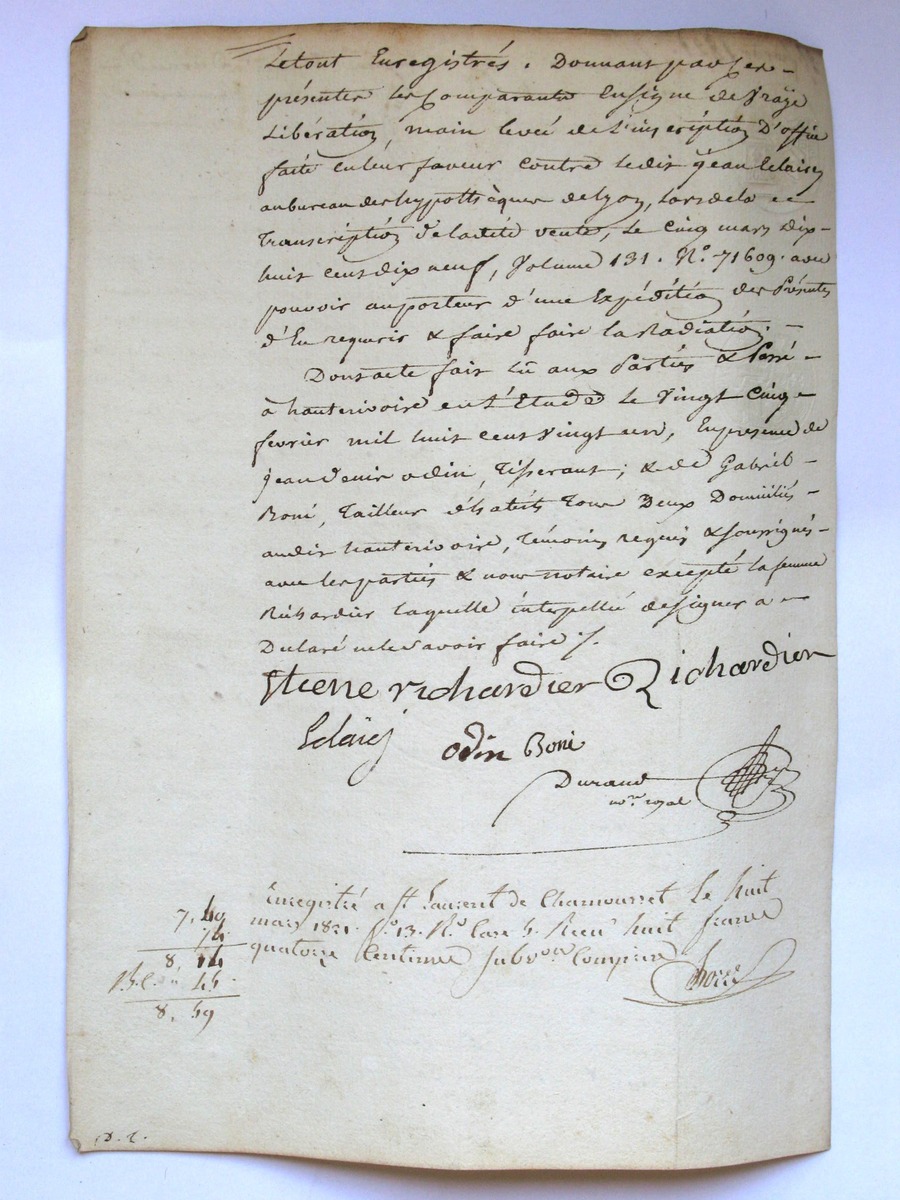 Letout Enregistrés. Donnant par ces
présentes les Comparants En signe de Vraÿe
Libération, main leveé de l'inscription D'office
faite en leur faveur contre ledit jean
au bureau des hypothèques de lyon, lors de la
Transcription de ladite vente, Le Cinq mars Dix-
huit cent dix neuf, Volume 131. No. 71609. avec
pouvoir au porteur d'une Expédition des Présentes
d'En requerir & faire faire la Radiation.
Dont acte fait Lu aux Parties & Passé
à hauterivoire en l'Etude Le Vingt Cinq
fevrier mil huit cent Vingt un, En presence de
jean denis odin, Tisserant; & de Gabriel
Boni, Tailleur d'habits Tous Deux Domiciliés
audit hauterivoire, Témoins requis & soussignés
avec les parties & nous notaire excepté la femme
Richardier laquelle interpellée de signer a
Declaré ne le savoir faire ./.
Etiene richardier Richardier
odin Boni
Durand
nore royal
Enregistré a St Laurent de Chamousset Le huit
mars 1821. fo. 13. Ro. Case 5. Reçu huit francs
quatorze Centimes Subvon Comprise
7. 49
74
8. 14
45
8. 59
D. 2.